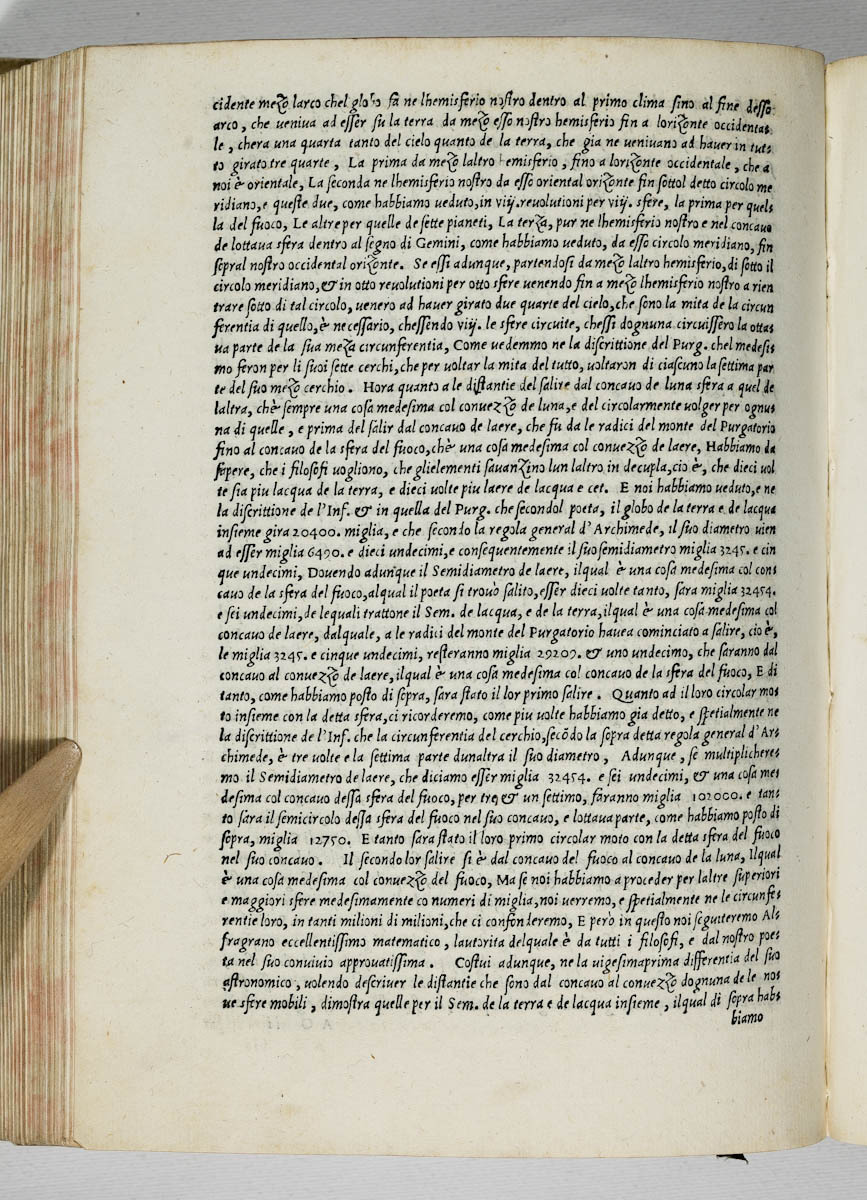 cidente mezo larco chel globo fa ne lhemisferio nostro dentro al primo clima sino al fine desso
arco, che veniva ad esser su la terra da mezo esso nostro hemisferio fin a lorizonte occidenta-
le, chera una quarta tanto del cielo quanto de la terra, che gia ne venivano ad haver in tut-
to girato tre quarte, La prima da mezo laltro hemisferio, fino a lorizonte occidentale, che a
noi è orientale, La seconda ne lhemisferio nostro da esso oriental orizonte fin sottol detto circolo me
ridiano, e queste due, come habbiamo veduto, in vij. revolutioni per vij. sfere, la prima per quel-
la del fuoco, Le altre per quelle de sette pianeti, La terza, pur ne lhemisferio nostro e nel concavo
de lottava sfera dentro al segno di Gemini, come habbiamo veduto, da esso circolo meridiano, fin
sepral nostro occidental orizonte. Se essi adunque, partendosi da mezo laltro hemisferio, di sotto il
circolo meridiano, & in otto revolutioni per otto sfere venendo fin a mezo lhemisferio nostro a rien
trare sotto di tal circolo, venero ad haver girato due quarte del cielo, che sono la mita de la circun
ferentia di quello, è necessario, chessendo viij. le sfere circuite, chessi dognuna circuissero la otta-
va parte de la sua meza circunferentia, Come vedemmo ne la discrittione del Purg. chel medesi-
mo feron per li suoi sette cerchi, che per voltar la mita del tutto, voltaron di ciascuno la settima par
te del suo mezo cerchio. Hora quanto a le distantie del salire dal concavo de luna sfera a quel de
laltra, chè sempre una cosa medesima col convezzo de luna, e del circolarmente volger per ognu-
na di quelle, e prima del salir dal concavo de laere, che fu da le radici del monte del Purgatorio
fino al concavo de la sfera del fuoco, chè una cosa medesima col convezzo de laere, Habbiamo da
sepere, che i filosofi vogliono, che glielementi savanzino lun laltro in decupla, cio è, che dieci vol
te sia piu lacqua de la terra, e dieci volte piu laere de lacqua e cet. E noi habbiamo veduto, e ne
la discrittione de l'Inf. & in quella del Purg. che secondol poeta, il globo de la terra e de lacqua
insieme gira 20400. miglia, e che secondo la regola general d'Archimede, il suo diametro vien
ad esser miglia 6490. e dieci undecimi, e consequentemente il suo semidiametro miglia 3245. e cin
que undecimi, Dovendo adunque il Semidiametro de laere, ilqual è una cosa medesima col con-
cavo de la sfera del fuoco, alqual il poeta si trovò salito, esser dieci volte tanto, sara miglia 32454.
e sei undecimi, de lequali trattone il Sem. de lacqua, e de la terra, ilqual è una cosa medesima col
concavo de laere, dalquale, a le radici del monte del Purgatorio havea cominciato a salire, cio è,
le miglia 3245. e cinque undecimi, resteranno miglia 29209. & uno undecimo, che saranno dal
concavo al convezzo de laere, ilqual è una cosa medesima col concavo de la sfera del fuoco, E di
tanto, come habbiamo posto di sepra, sara stato il lor primo salire. Quanto ad il loro circolar mo-
to insieme con la detta sfera, ci ricorderemo, come piu volte habbiamo gia detto, e spetialmente ne
la discrittione de l'Inf. che la circunferentia del cerchio, secōdo la sopra detta regola general d'Ar-
chimede, è tre volte e la settima parte dunaltra il suo diametro, Adunque, se multiplichere-
mo il Semidiametro de laere, che diciamo esser miglia 32454. e sei undecimi, & una cosa me-
desima col concavo dessa sfera del fuoco, per tre, & un settimo, faranno miglia 102000. e tan-
to sara il semicircolo dessa sfera del fuoco nel suo concavo, e lottava parte, come habbiamo posto di
sepra, miglia 12750. E tanto sara stato il loro primo circolar moto con la detta sfera del fuoco
nel suo concavo. Il secondo lor salire si è dal concavo del fuoco al concavo de la luna, Ilqual
è una cosa medesima col convezzo del fuoco, Ma se noi habbiamo a proceder per laltre superiori
e maggiori sfere medesimamente co numeri di miglia, noi verremo, e spetialmente ne le circunfe-
rentie loro, in tanti milioni di milioni, che ci confonderemo, E però in questo noi seguiteremo Al-
fragrano eccellentissimo matematico, lautorita delquale è da tutti i filosofi, e dal nostro poe-
ta nel suo convivio approvatissima. Costui adunque, ne la vigesimaprima differentia del suo
astronomico, volendo descriver le distantie che sono dal concavo al convezzo dognuna de le no-
ve sfere mobili, dimostra quelle per il Sem. de la terra e de lacqua insieme, ilqual di sepra hab-
biamo